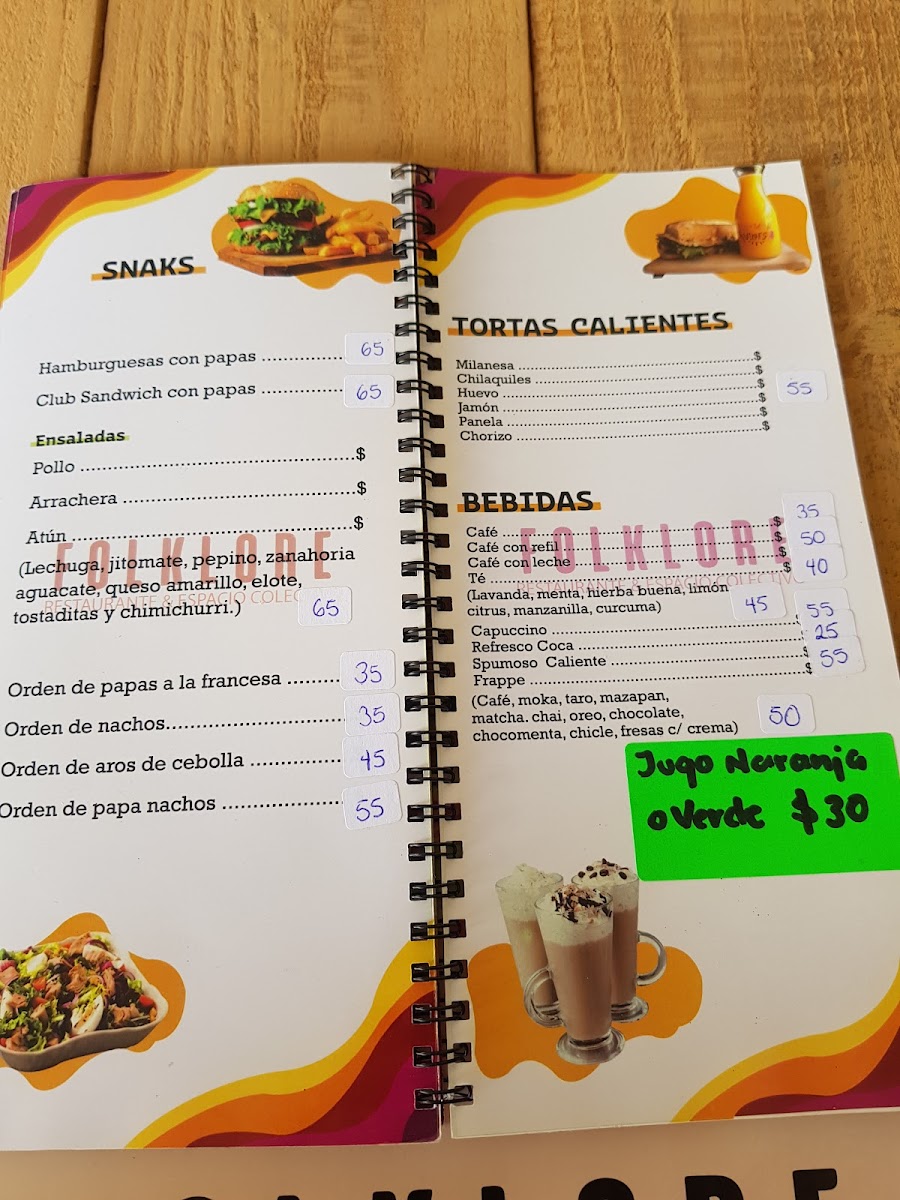 SNAKS
Hamburguesas con papas ............... 65
Club Sandwich con papas ............... 65
Ensaladas
Pollo ............... $
Arrachera ............... $
Atún ............... $
FOLKLORE
RESTAURANTE & ESPACIO COLEC
(Lechuga, jitomate, pepino, zanahoria
aguacate, queso amarillo, elote,
tostaditas y chimichurri.) 65
Orden de papas a la francesa ......... 35
Orden de nachos............... 35
Orden de aros de cebolla ............... 45
Orden de papa nachos ............... 55
TORTAS CALIENTES
Milanesa ............... $
Chilaquiles ............... $
Huevo ............... $ 55
Jamón ............... $
Panela ............... $
Chorizo ............... $
BEBIDAS
Café ............... $ 35
Café con refil ............... $ 50
Café con leche ............... $
Té ............... $ 40
FOLKLORE
RESTAURANTE & ESPACIO COLECTIVO
(Lavanda, menta, hierba buena, limón
citrus, manzanilla, curcuma) 45
Capuccino ............... 55
Refresco Coca ............... 25
Spumoso Caliente ............... $ 55
Frappe ............... $
(Café, moka, taro, mazapan,
matcha. chai, oreo, chocolate,
chocomenta, chicle, fresas c/ crema) 50
Jugo Naranja
o Verde $30